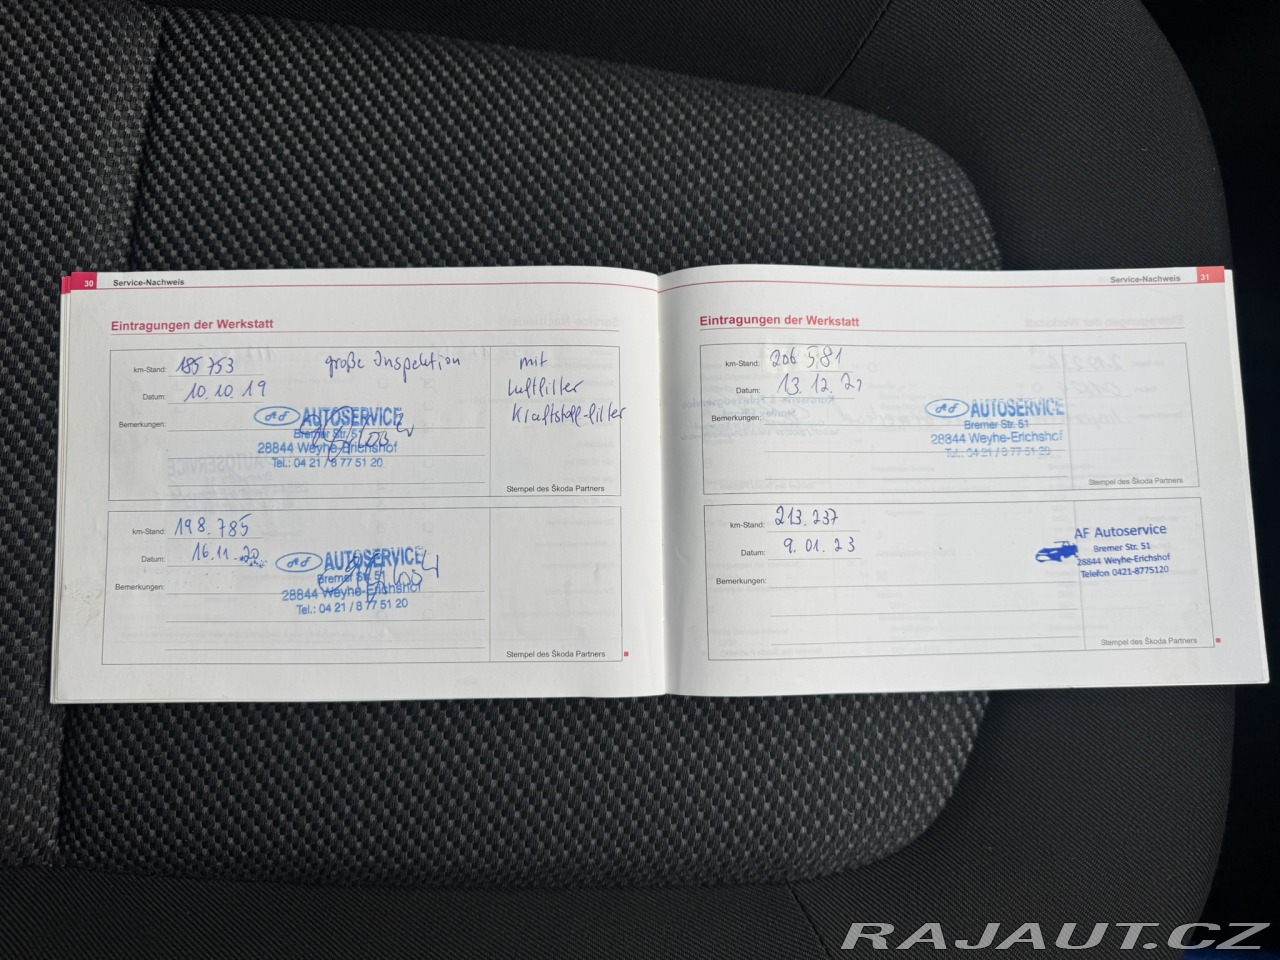 30 Service-Nachweis
Eintragungen der Werkstatt
km-Stand: 185 753
große Inspektion
mit
Luftfilter
Kraftstoff-filter
Datum: 10.10.19
Bemerkungen:
AF AUTOSERVICE
Bremer Str. 51
28844 Weyhe-Erichshof
Tel.: 04 21 / 8 77 51 20
Stempel des Škoda Partners
km-Stand: 198.785
Datum: 16.11.20
Bemerkungen:
AF AUTOSERVICE
Bremer Str. 51
28844 Weyhe-Erichshof
Tel.: 04 21 / 8 77 51 20
Stempel des Škoda Partners
Service-Nachweis 31
Eintragungen der Werkstatt
km-Stand: 206.581
Datum: 13.12.21
Bemerkungen:
AF AUTOSERVICE
Bremer Str. 51
28844 Weyhe-Erichshof
Tel.: 04 21 / 8 77 51 20
Stempel des Škoda Partners
km-Stand: 213.237
Datum: 9.01.23
Bemerkungen:
AF Autoservice
Bremer Str. 51
28844 Weyhe-Erichshof
Telefon 0421-8775120
Stempel des Škoda Partners
RAJAUT.CZ